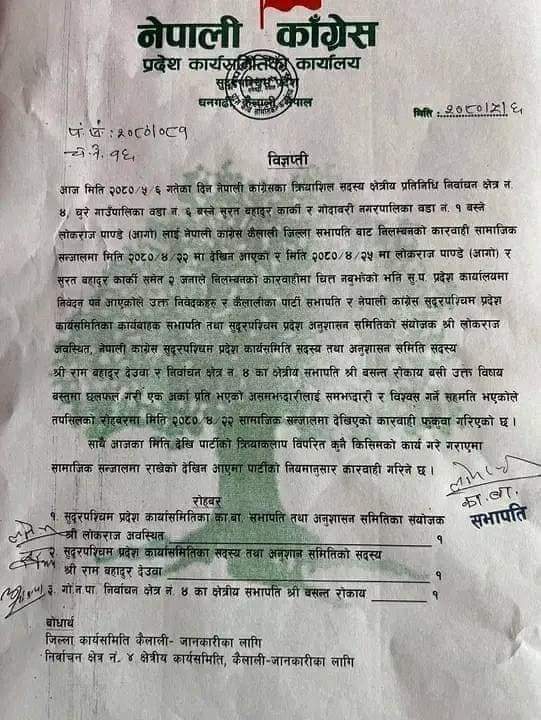 नेपाली काँग्रेस
प्रदेश कार्यसमितिको कार्यालय
सुदूरपश्चिम प्रदेश
धनगढी, कैलाली, नेपाल
मिति: २०८०/५/६
प. सं: २०८०/०८१
च. नं. १६
विज्ञप्ती
आज मिति २०८०/५/६ गतेका दिन नेपाली कांग्रेसका क्रियाशिल सदस्य क्षेत्रीय प्रतिनिधि निर्वाचन क्षेत्र नं.
४, चुरे गाउँपालिका वडा नं. ६ बस्ने सुरत बहादुर कार्की र गोदावरी नगरपालिका वडा नं. १ बस्ने
लोकराज पाण्डे (आगो) लाई नेपाली कांग्रेस कैलाली जिल्ला सभापति बाट निलम्बनको कारवाही सामाजिक
सन्जालमा मिति २०८०/४/२२ मा देखिन आएको र मिति २०८०/४/२५ मा लोकराज पाण्डे (आगो) र
सुरत बहादुर कार्की समेत २ जनाले निलम्बनको कारवाहीमा चित्त नबुझेको भनि सु.प. प्रदेश कार्यालयमा
निवेदन पर्न आएकोले उक्त निवेदकहरु र कैलालीका पार्टी सभापति र नेपाली कांग्रेस सुदूरपश्चिम प्रदेश
कार्यसमितिका कार्यबाहक सभापति तथा सुदूरपश्चिम प्रदेश अनुशासन समितिको संयोजक श्री लोकराज
अवस्थित, नेपाली कांग्रेस सुदूरपश्चिम प्रदेश कार्यसमिति सदस्य तथा अनुशासन समिति सदस्य
श्री राम बहादुर देउवा र निर्वाचन क्षेत्र नं. ४ का क्षेत्रीय सभापति श्री बसन्त रोकाय बसी उक्त विषय
बस्तुमा छलफल गरी एक अर्का प्रति भएको असमझदारीलाई समझदारी र विश्वस गर्ने सहमति भएकोले
तपसिलका रोहबरमा मिति २०८०/४/२२ सामाजिक सन्जालमा देखिएको कारवाही फुकुवा गरिएको छ।
साथै आजका मिति देखि पार्टीको क्रियाकलाप विपरित कुनै किसिमको कार्य गरे गराएमा
सामाजिक सन्जालमा राखेको देखिन आएमा पार्टीको नियमानुसार कारवाही गरिने छ।
का.बा.
सभापति
रोहबर
१. सुदूरपश्चिम प्रदेश कार्यासमितिका का.बा. सभापति तथा अनुशासन समितिका संयोजक
श्री लोकराज अवस्थित १
२. सुदूरपश्चिम प्रदेश कार्यासमितिका सदस्य तथा अनुशान समितिको सदस्य
श्री राम बहादुर देउवा १
३. गो.न.पा. निर्वाचन क्षेत्र नं. ४ का क्षेत्रीय सभापति श्री बसन्त रोकाय १
बोधार्थ
जिल्ला कार्यसमिति कैलाली- जानकारीका लागि
निर्वाचन क्षेत्र नं. ४ क्षेत्रीय कार्यसमिति, कैलाली-जानकारीका लागि